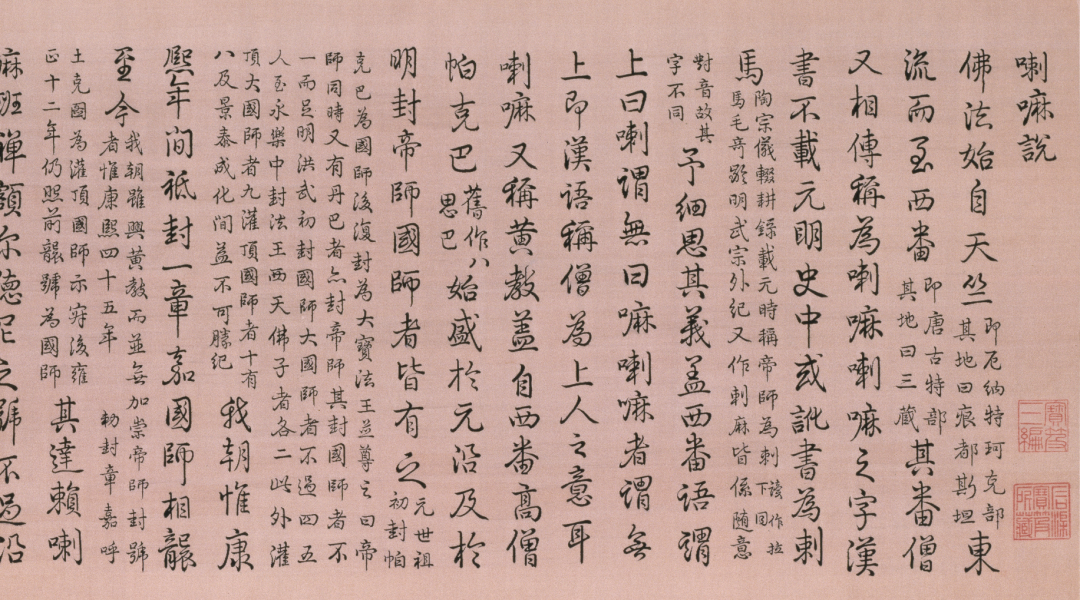 喇嘛說
佛法始自天竺
即厄納特珂克部
其地曰痕都斯坦
東
流而至西番
即唐古特部
其地曰三藏
其番僧
又相傳稱為喇嘛喇嘛之字漢
書不載元明史中或訛書為剌
馬
陶宗儀輟耕錄載元時稱帝師為剌
讀作拉
下同
馬毛奇齡明武宗外紀又作剌麻皆係随意
對音故其
字不同
予細思其義盖西番語謂
上曰喇謂無曰嘛喇嘛者謂無
上即漢語稱僧為上人之意耳
喇嘛又稱黄教盖自西番高僧
帕克巴
舊作八
思巴
始盛於元沿及於
明封帝師國師者皆有之
元世祖
初封帕
克巴為國師後復封為大寶法王並尊之曰帝
師同時又有丹巴者亦封帝師其封國師者不
一而足明洪武初封國師大國師者不過四五
人至永樂中封法王西天佛子者各二此外灌
頂大國師者九灌頂國師者十有
八及景泰成化間益不可勝紀
我朝惟康
熙年間祗封一章嘉國師相襲
至今
我朝雖興黄教而並無加崇帝師封號
者惟康熙四十五年 勅封章嘉呼
土克圖為灌頂國師示寂後雍
正十二年仍照前襲號為國師
其達賴喇
嘛班禪額尔德尼之號不過沿
寶笈
三編
石渠
寶笈
所藏